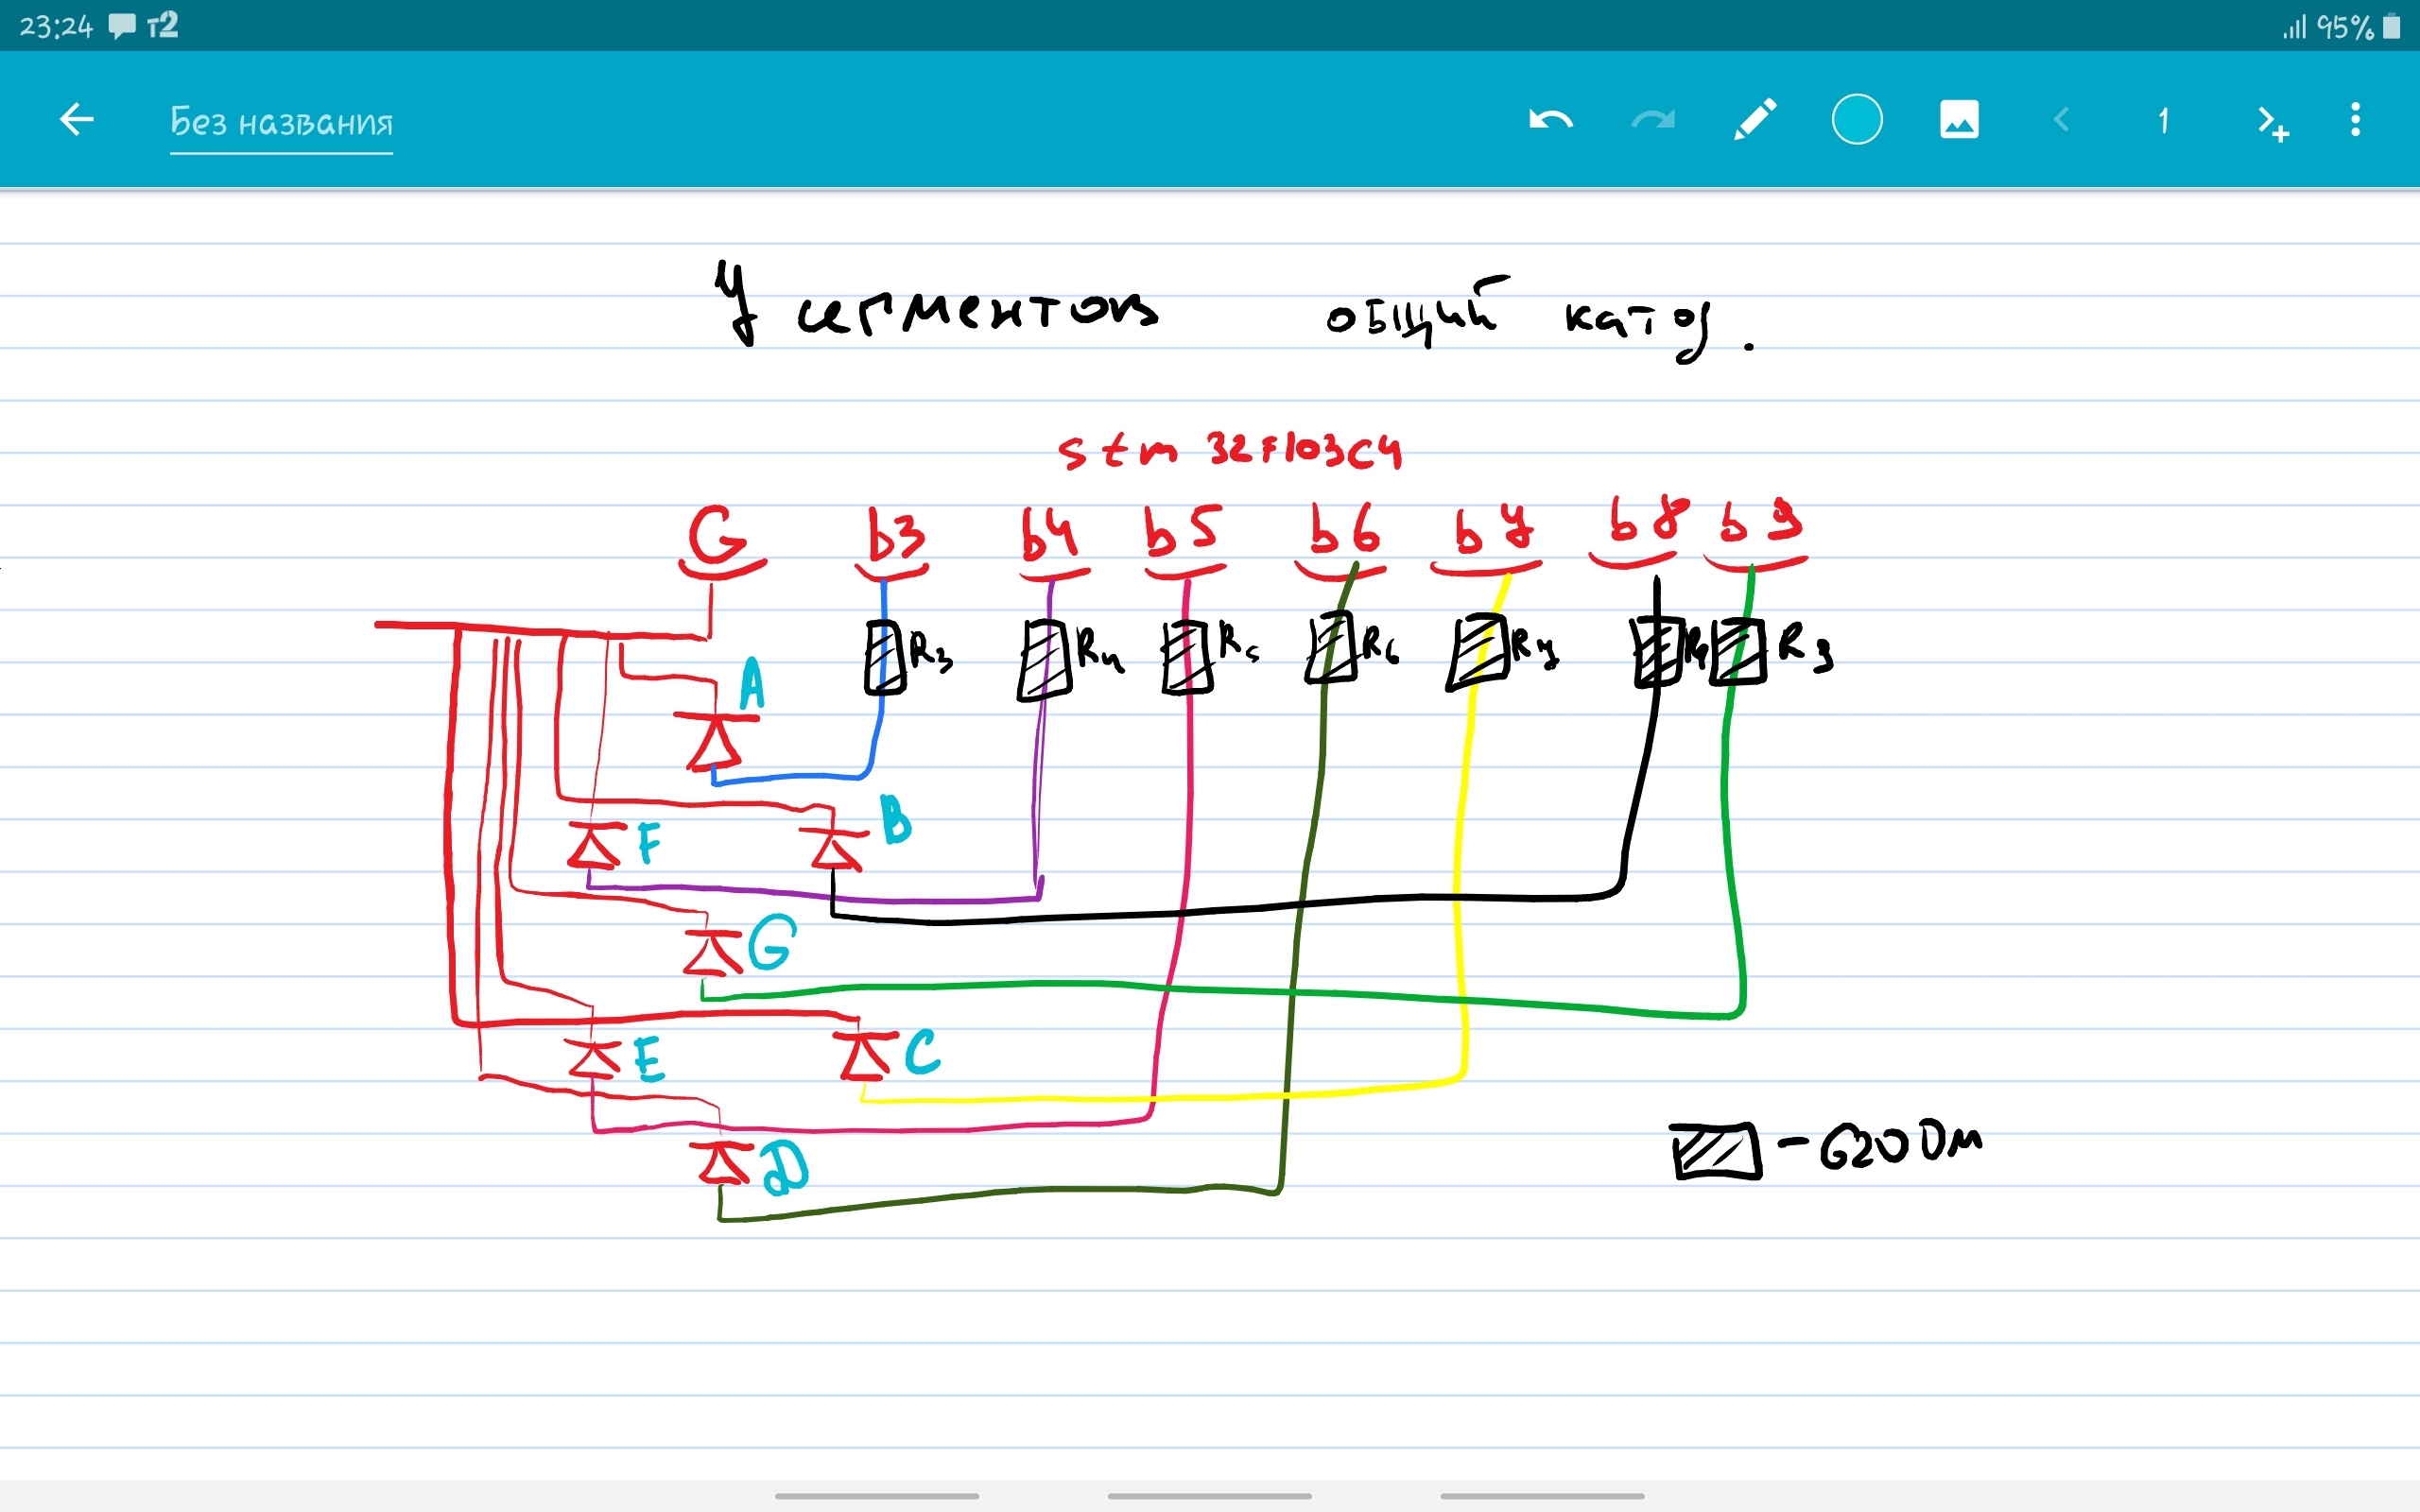 23:24 T2 95%
Без названия 1
7 сегментов общий катод.
stm 32f103c4
G b3 b4 b5 b6 b7 b8 b9
R3 R4 R5 R6 R7 R8 R9
A
B
F
G
E C
D
- 620 Om